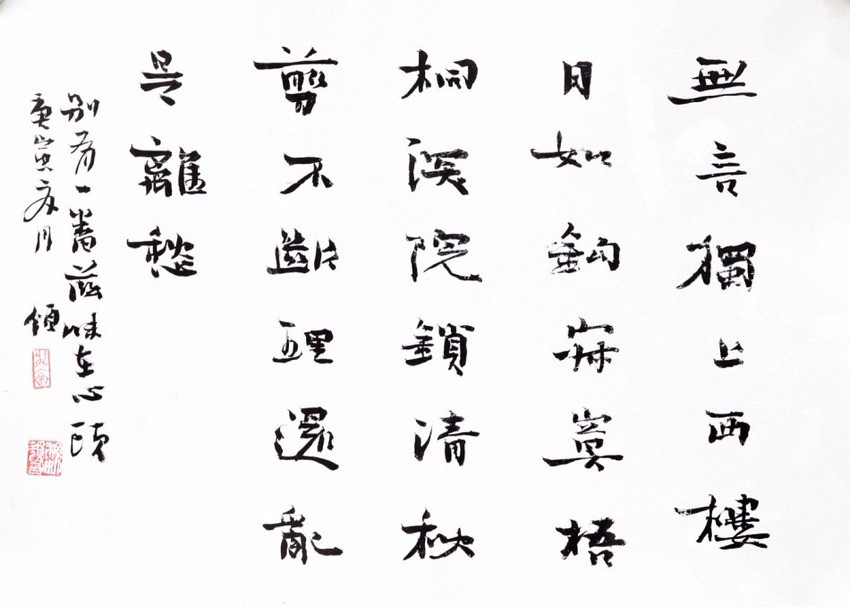 無言獨上西樓
月如鉤寂寞梧
桐深院鎖清秋
剪不斷理還亂
是離愁
別有一番滋味在心頭
庚寅月